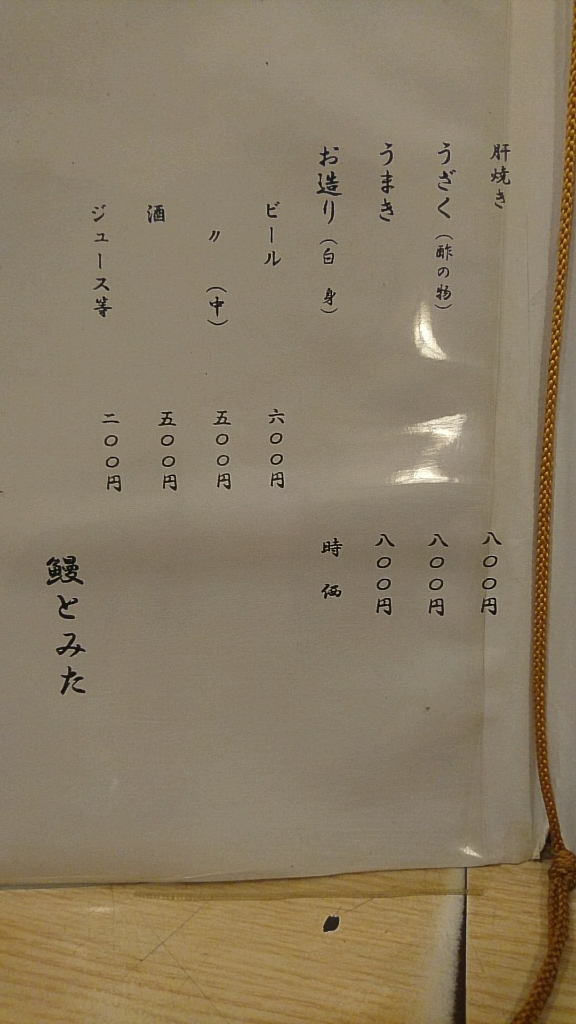 肝焼き 八〇〇円
うざく(酢の物) 八〇〇円
うまき 八〇〇円
お造り(白身) 時価
ビール 六〇〇円
〃(中) 五〇〇円
酒 五〇〇円
ジュース等 二〇〇円
鰻とみた